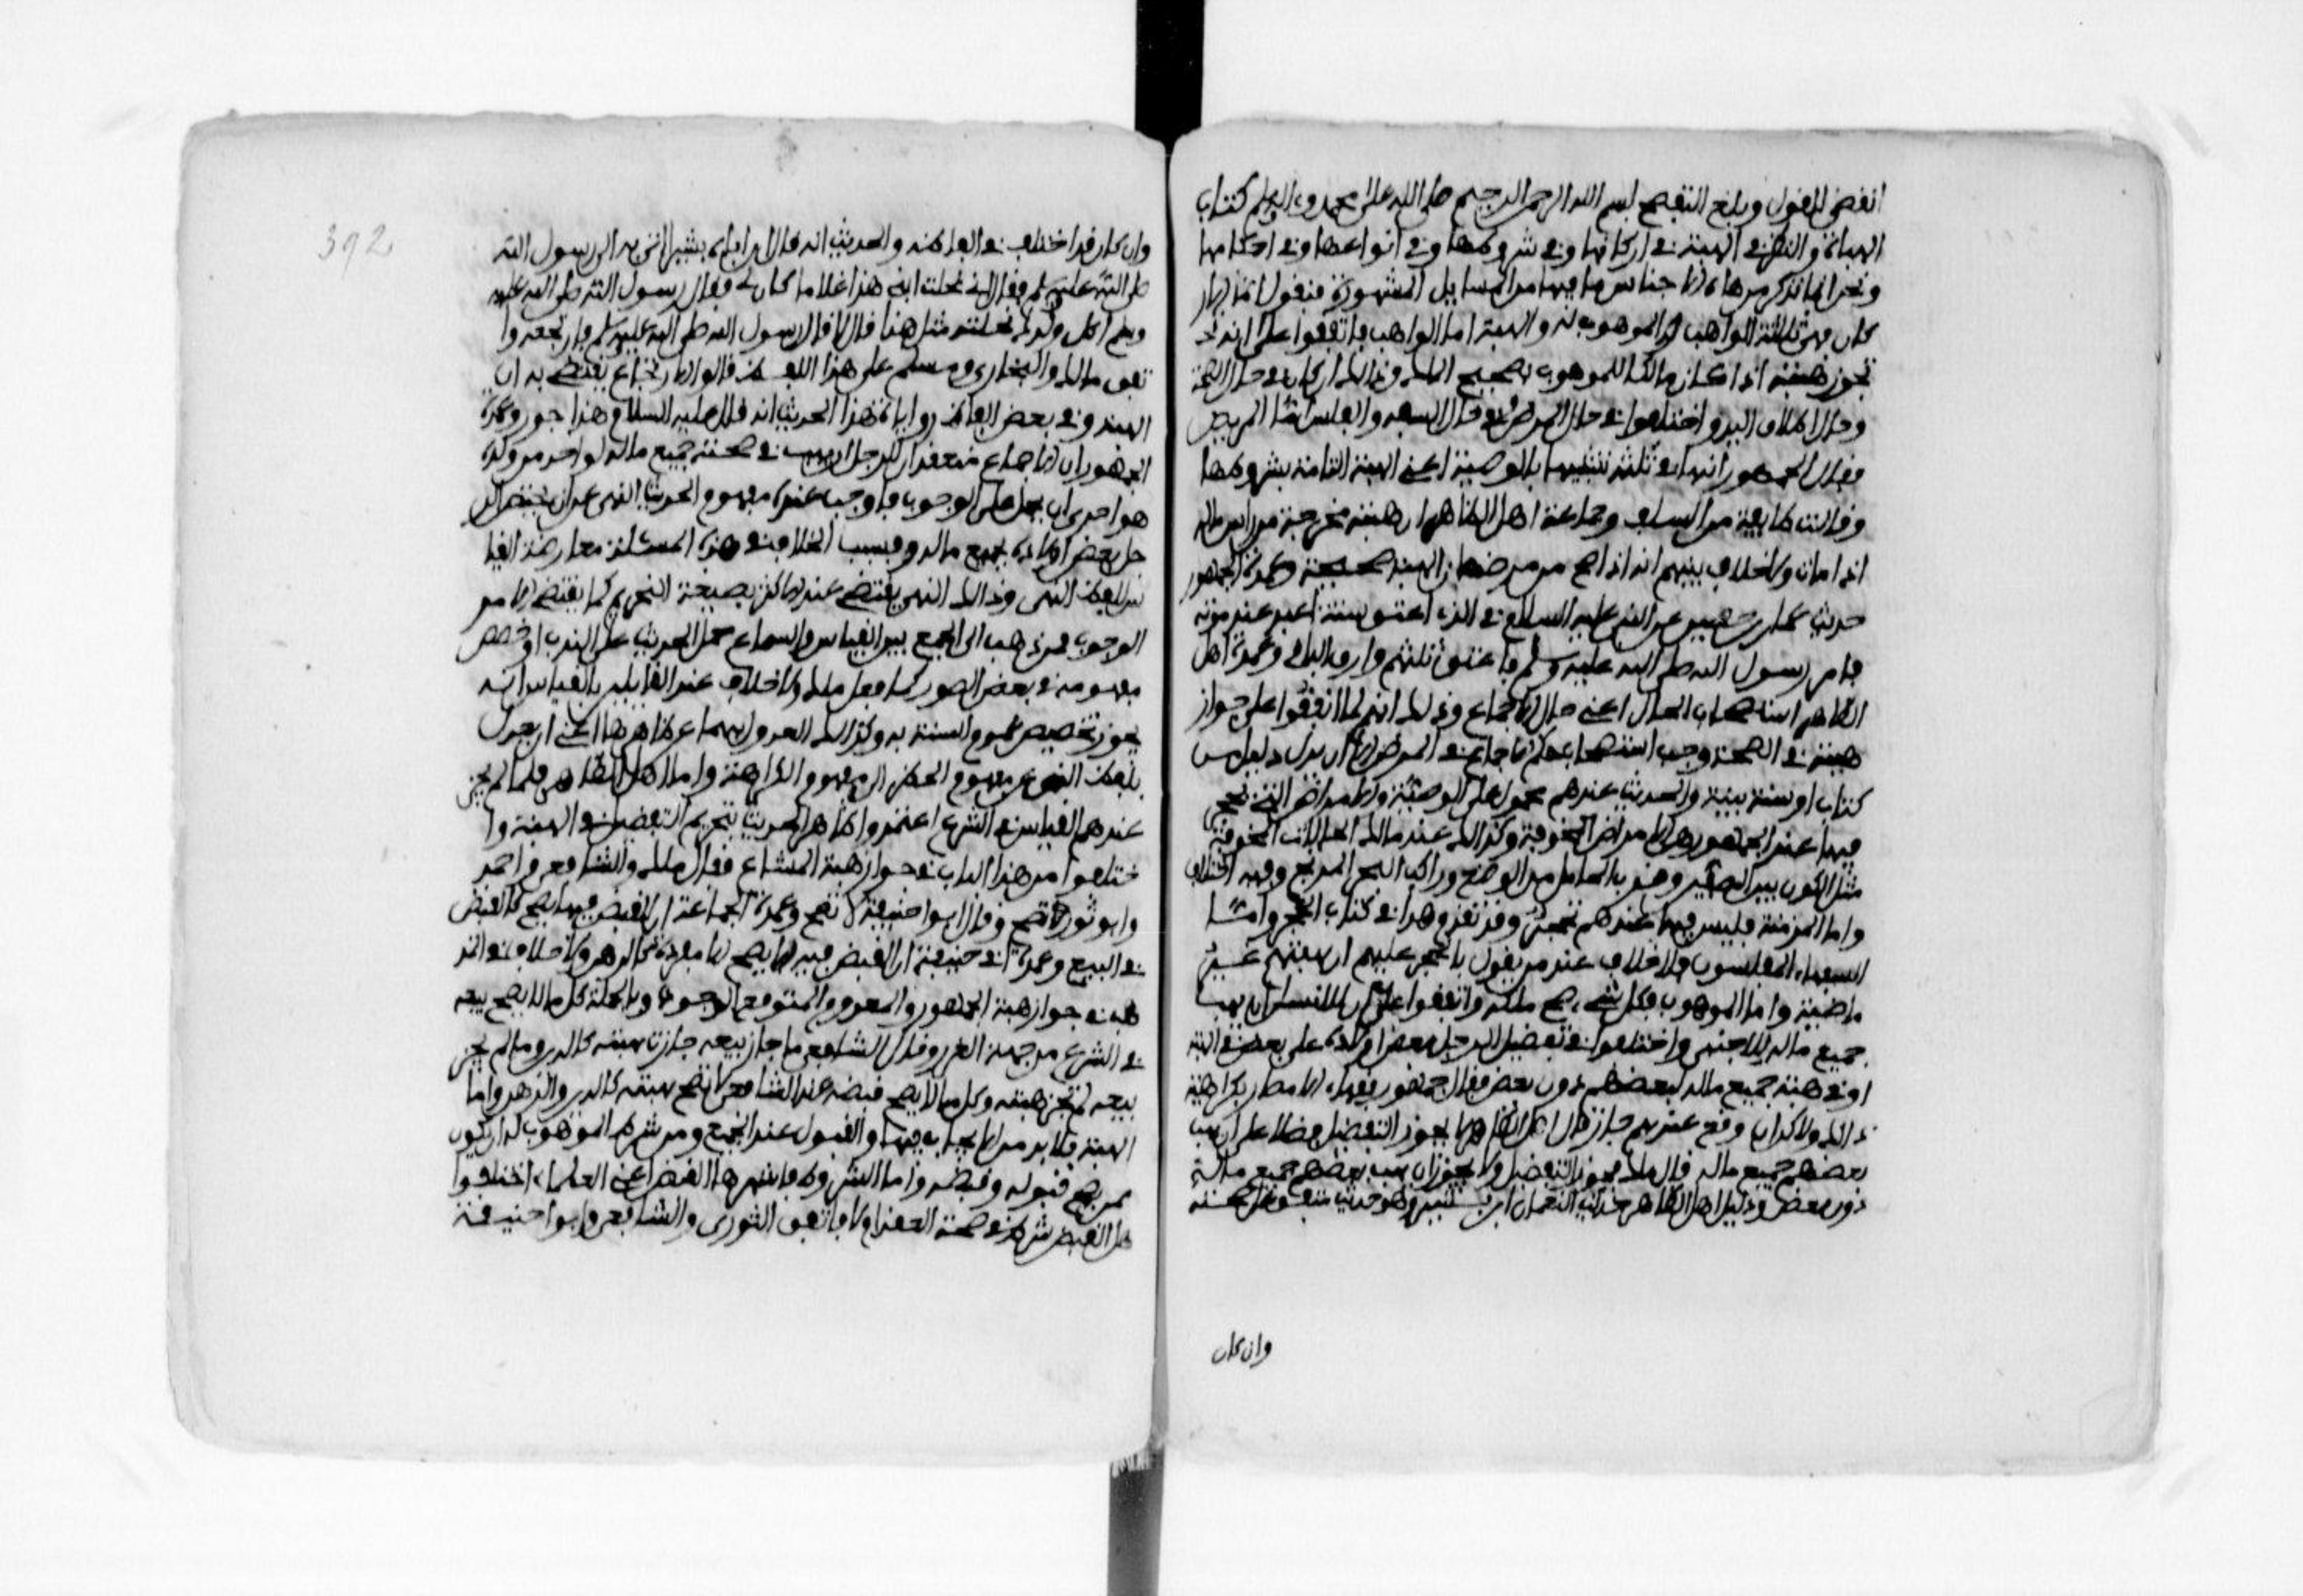 انقضى القول وبلغ التقصي بسم الله الرحمن الرحيم صلى الله على محمد وءاله وسلم كتاب
الهبات والنظر في الهبة في اركانها وفي شروطها وفي انواعها وفي احكامها
ونحن انما نذكر من هذه الاجناس ما فيها من المسايل المشهورة فنقول اما الار
كان فهي ثلاثة الواهب والموهوب له والهبة اما الواهب فاتفقوا على انه
تجوز هبته اذا كان مالكا للموهوب صحيح الملك وذالك اذا كان في حال الصحة
وحال اطلاق اليد واختلفوا في حال المرض وفي حال السفه والفلس اما المريض
فقال الجمهور انها في ثلثه تشبيها بالوصية اعني الهبة التامة بشروطها
وقالت طايفة من السلف وجماعة اهل الظاهر ان هبته تخرج من راس ماله
اذا مات ولا خلاف بينهم انه اذا صح من مرضه ان الهبة صحيحة وعمدة الجمهور
حديث عمران بن حصين عن النبي عليه السلام في الذي اعتق ستة اعبد عند موته
فامره رسول الله صلى الله عليه وسلم فاعتق ثلثهم وارق الباقي وعمدة اهل
الظاهر استصحاب الحال اعني حال الاجماع وذلك انهم لما اتفقوا على جواز
هبته في الصحة وجب استصحاب حكم الاجماع في المرض الا ان يدل دليل من
كتاب او سنة بينة والحديث عندهم محمول على الوصية والامراض التي يحجر
فيها عند الجمهور هي الامراض المخوفة وكذالك عند مالك الحالات المخوفة
مثل الكون بين الصفين وقرب الحامل من الوضع وراكب البحر المرتج وفيه اختلاف
واما المزمنة فليس فيها عندهم تحجير وقد تقدم هذا في كتاب الحجر واما
السفهاء المفلسون فلا خلاف عند من يقول بالحجر عليهم ان هبتهم غير
ماضية واما الموهوب فكل شيء صح ملكه واتفقوا على ان للانسان ان يهب
جميع ماله للاجنبي واختلفوا في تفضيل الرجل بعض اولاده على بعض في الهبة
او في هبة جميع ماله لبعضهم دون بعض فقال جمهور فقهاء الامصار بكراهية
ذالك ولاكن ان وقع عندهم جاز وقال اهل الظاهر لا يجوز التفضيل فضلا على ان يهب
بعضهم جميع ماله قال ملك يجوز التفضيل ولا يجوز ان يهب بعضهم جميع ماله
دون بعض ودليل اهل الظاهر حديث النعمان ابن بشير وهو حديث متفق على صحته
وان كان
392
وان كان قد اختلف في الفاظه والحديث انه قال ان اباه بشيرا اتى به الى رسول الله
صلى الله عليه وسلم فقال اني نحلت ابني هذا غلاما كان لي فقال رسول الله صلى الله عليه
وسلم اكل ولدك نحلته مثل هذا قال لا قال رسول الله صلى الله عليه وسلم فارتجعه وا
تفق مالك والبخاري ومسلم على هذا اللفظ قالوا والارتجاع يقتضي بطلان
الهبة وفي بعض الفاظ روايات هذا الحديث انه قال عليه السلام هذا جور وعمدة
الجمهور ان الاجماع منعقد ان للرجل ان يهب في صحته جميع ماله لواحد من ولده
هو احرى ان يحمل على الوجوب فاوجب عنده مفهوم الحديث النهي عن ان يخص الر
جل بعض اولاده بجميع ماله فسبب الخلاف في هذه المسئلة معارضة القيا
س للفظ النهي وذالك النهي يقتضي عند الاكثر بصيغة التحريم كما يقتضي الامر
الوجوب فمن ذهب الى الجمع بين القياس والسماع حمل الحديث على الندب او خصص
مفهومه في بعض الصور كما فعل ملك ولا خلاف عند القايلين بالقياس انه
يجوز تخصيص عموم السنة به وكذالك العدول بها عن ظاهرها اعني ان يعدل
بلفظ النهي عن مفهوم الحظر الى مفهوم الكراهية واما اهل الظاهر فلما لم يجز
عندهم القياس في الشرع اعتمدوا ظاهر الحديث بتحريم التفضيل في الهبة وا
ختلفوا من هذا الباب في جواز هبة المشاع فقال ملك والشافعي واحمد
وابو ثور تصح وقال ابو حنيفة لا تصح وعمدة الجماعة ان القبض فيها يصح كالقبض
في البيع وعمدة ابي حنيفة ان القبض فيه لا يصح الا مفردة كالرهن ولا خلاف في المذ
هب في جواز هبة المجهول والمعدوم المتوقع الوجود وبالجملة كل ما لا يصح بيعه
في الشرع من جهة الغرر وقال الشافعي ما جاز بيعه جازت هبته كالدين وما لم يجز
بيعه لم تجز هبته وكل ما لا يصح قبضه عند الشافعي لا تصح هبته كالدين والرهن واما
الهبة فلا بد من الايجاب فيها والقبول عند الجميع ومن شرط الموهوب له ان يكون
ممن يصح قبوله وقبضه واما الشروط فاشهرها القبض اعني العلماء اختلفوا
هل القبض شرط في صحة العقد ام لا فاتفق الثوري والشافعي وابو حنيفة